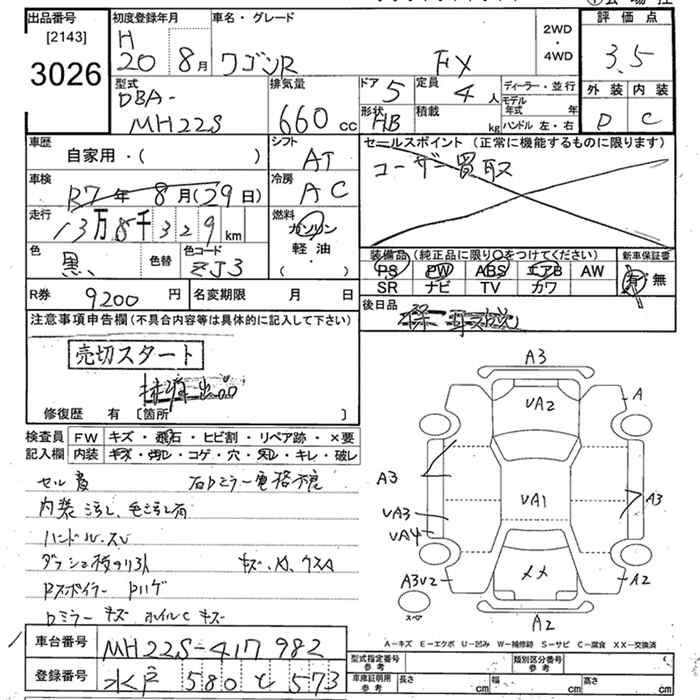 出品番号 初度登録年月 車名・グレード 2WD ・ 4WD 評価点
[2143] H
3026 20 8月 ワゴンR FX 3.5
型式 排気量 ドア 5 定員 4人 ディーラー・並行 外装 内装
DBA- 形状 HB 積載 kg モデル年式 年
MH22S 660 cc ハンドル 左・右 D C
車歴 シフト セールスポイント (正常に機能するものに限ります)
自家用・( ) AT ユーザー買取
車検 冷房
R7年 8月(29日) AC
走行 燃料
13万8千329km ガソリン
色 色替 色コード 軽・油 装備品 (純正品に限り○をつけてください) 新車保証書
黒 ZJ3 ( ) PS PW ABS エアB AW 有・無
SR ナビ TV カワ
R券 9200円 名変期限 月 日 後日品
注意事項申告欄 (不具合内容等は具体的に記入して下さい)
売切スタート
修復歴 有 [箇所 ]
検査員 FW キズ・飛石・ヒビ割・リペア跡・×要
記入欄 内装 キズ・汚レ・コゲ・穴・スレ・キレ・破レ
右Dミラー電格
内装 汚れ、
ハンドルスレ
キズ、
Rスポイラー Pハゲ
Dミラー キズ ホイルC キズ
A3
UA2 A
A3 UA1 A3
UA3
UA4
A3U2 メメ A2
スペア A2
A-キズ E-エクボ U-凹み W-補修跡 S-サビ C-腐食 XX-交換済
車台番号 MH22S-417982
登録番号 水戸 580 と 573
型式指定番号 参考 類別区分番号 参考
車庫証明用 参考 長さ cm 幅 cm 高さ cm